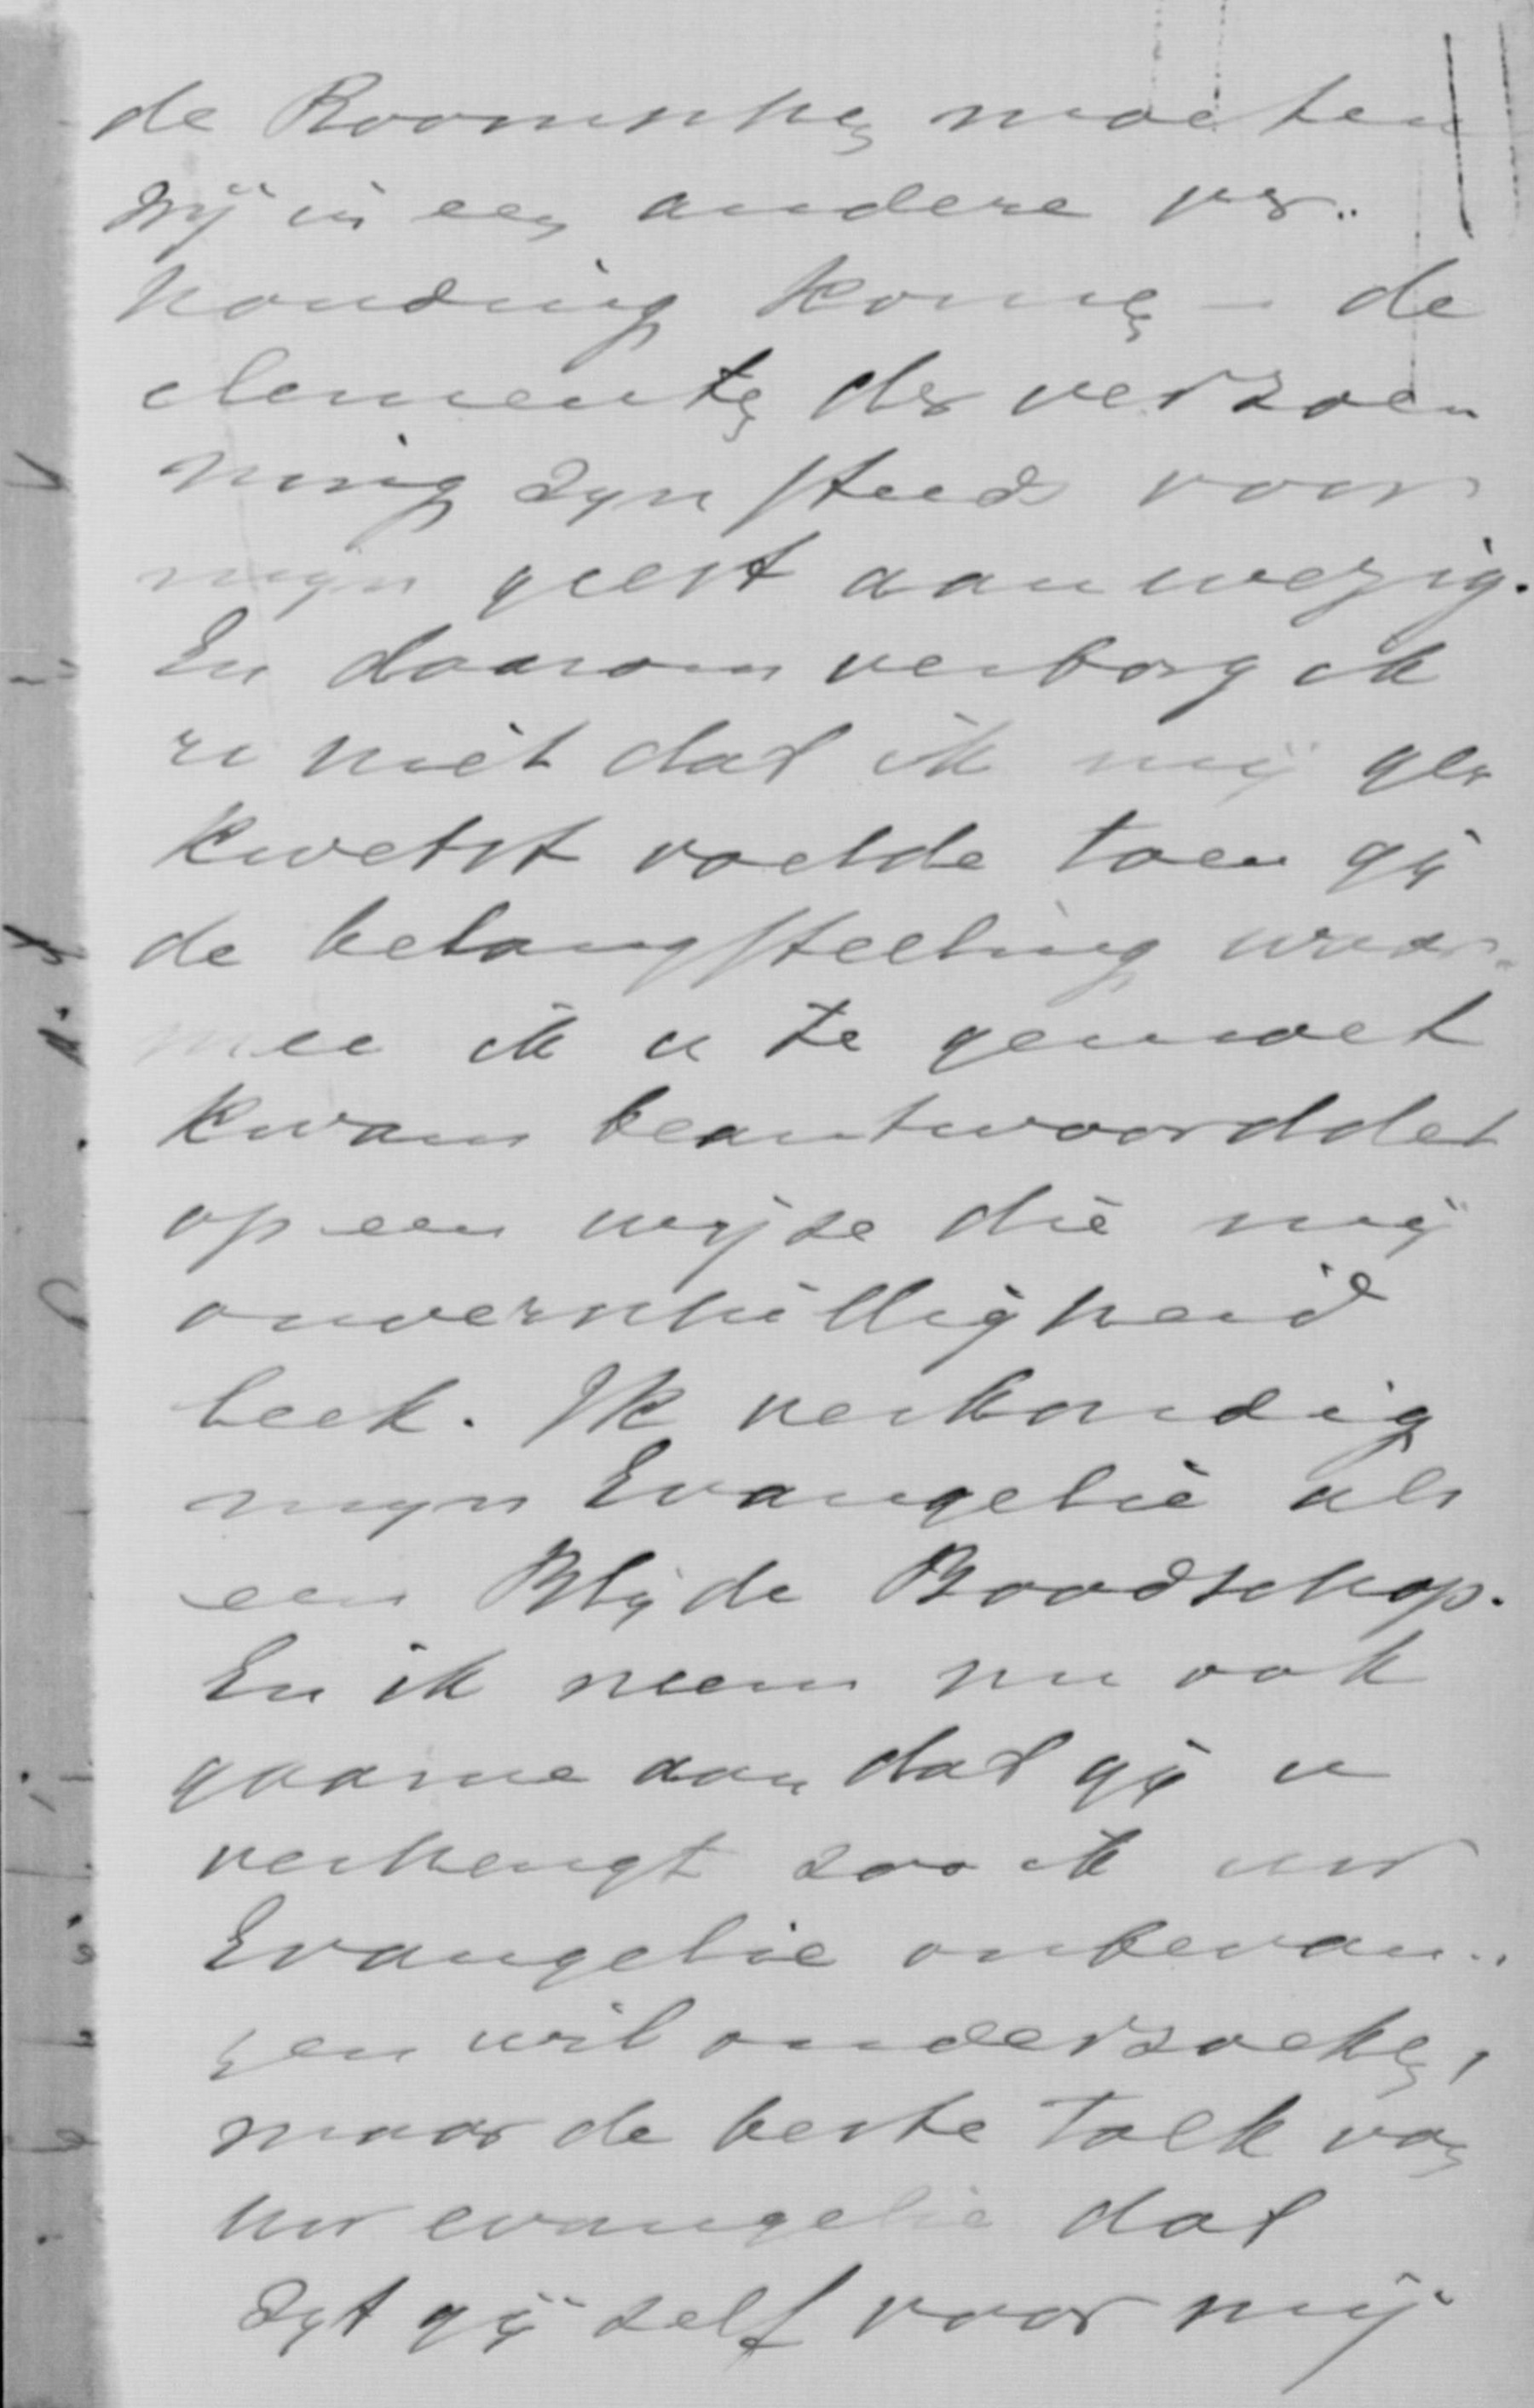 de Roomschen moeten
wij in een andere ver-
houding komen – de
elementen der verzoen
ning zijn steeds voor
mijn geest aanwezig.
En daarom verborg ik
u niet dat ik mij ge-
kwetst voelde toen gij
de belangstelling waar-
mee ik u te gemoet
kwam beantwoorddet
op een wijze die mij
onverschilligheid
leek. Ik verkondig
mijn Evangelie als
een Blijde Boodschap.
En ik neem nu ook
gaarne aan dat gij u
verheugt zoo ik uw
Evangelie onbevan-
gen wil onderzoeken,
maar de beste tolk van
uw evangelie dat
zijt gij zelf voor mij